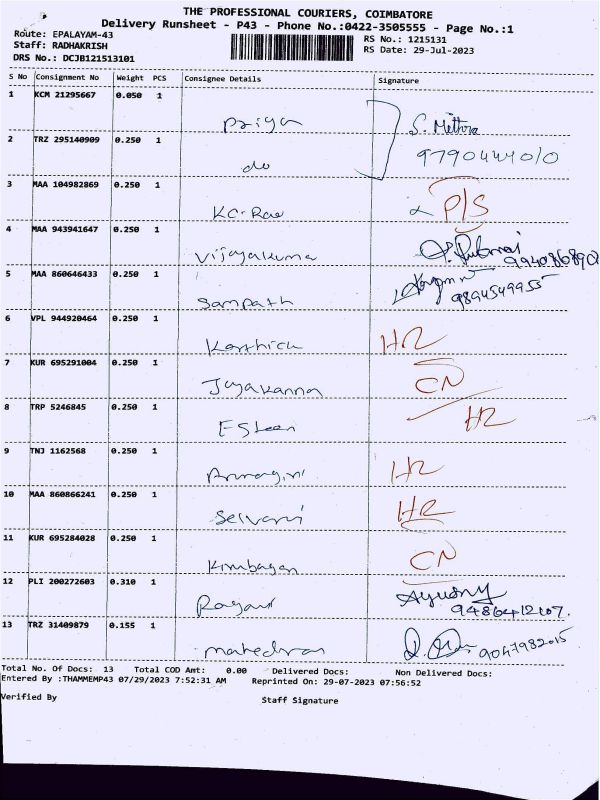 THE PROFESSIONAL COURIERS, COIMBATORE
Delivery Runsheet - P43 - Phone No.:0422-3505555 - Page No.:1
Route: EPALAYAM-43 RS No.: 1215131
Staff: RADHAKRISH RS Date: 29-Jul-2023
DRS No.: DCJB121513101
S No Consignment No Weight PCS Consignee Details Signature
1 KCM 21295667 0.050 1 Priya S. Mithra
2 TRZ 295140909 0.250 1 do 9790444010
3 MAA 104982869 0.250 1 KC-Rao P/S
4 MAA 943941647 0.250 1 Vijayakuma
5 MAA 860646433 0.250 1 Sampath 9894549955
6 VPL 944920464 0.250 1 Karthick HR
7 KUR 695291004 0.250 1 Jayakanna CN
8 TRP 5246845 0.250 1 HR
9 TNJ 1162568 0.250 1 HR
10 MAA 860866241 0.250 1 Selvami HR
11 KUR 695284028 0.250 1 CN
12 PLI 200272603 0.310 1 9486412107.
13 TRZ 31409879 0.155 1 9047982015
Total No. Of Docs: 13 Total COD Amt: 0.00 Delivered Docs: Non Delivered Docs:
Entered By :THAMMEMP43 07/29/2023 7:52:31 AM Reprinted On: 29-07-2023 07:56:52
Verified By Staff Signature